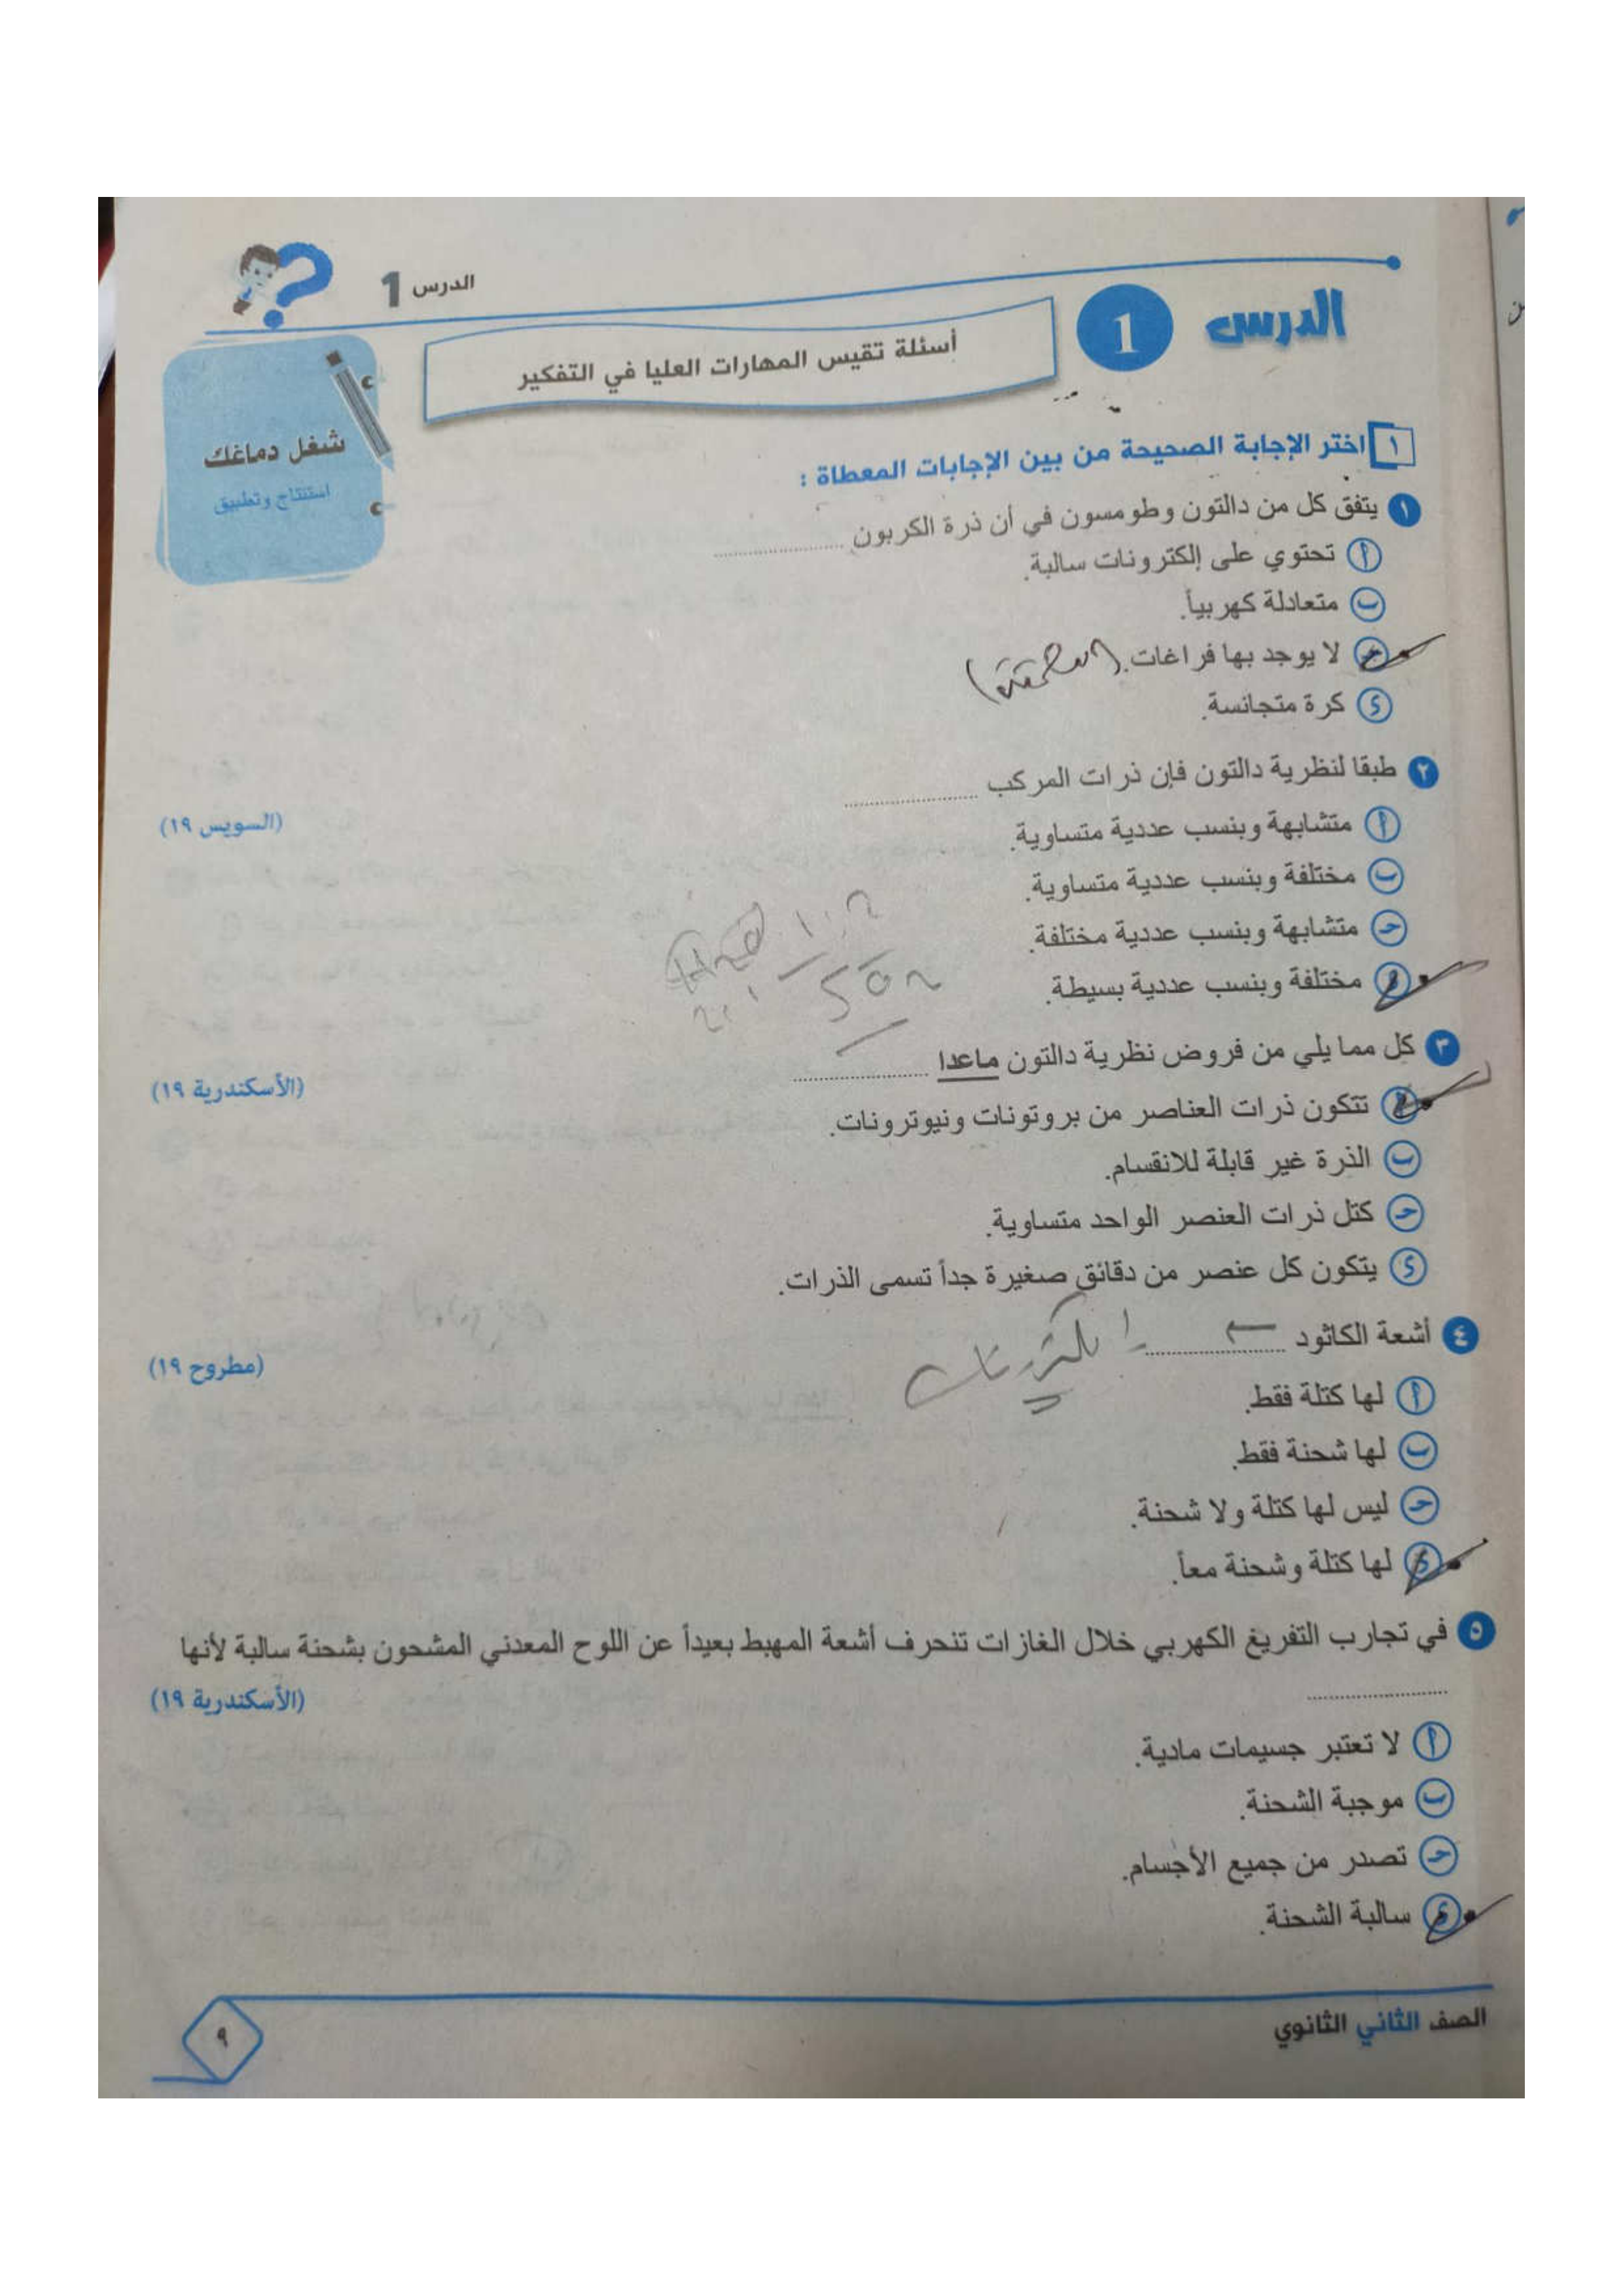 الدرس 1
الدرس 1
أسئلة تقيس المهارات العليا في التفكير
شغل دماغك
استنتاج وتطبيق
١ اختر الإجابة الصحيحة من بين الإجابات المعطاة :
١ يتفق كل من دالتون وطومسون في أن ذرة الكربون ....................
أ تحتوي على إلكترونات سالبة.
ب متعادلة كهربياً.
ج لا يوجد بها فراغات. (مصمتة)
د كرة متجانسة.
٢ طبقا لنظرية دالتون فإن ذرات المركب ....................
(السويس ١٩)
أ متشابهة وبنسب عددية متساوية.
ب مختلفة وبنسب عددية متساوية.
ج متشابهة وبنسب عددية مختلفة.
د مختلفة وبنسب عددية بسيطة.
٣ كل مما يلي من فروض نظرية دالتون ماعدا ....................
(الأسكندرية ١٩)
أ تتكون ذرات العناصر من بروتونات ونيوترونات.
ب الذرة غير قابلة للانقسام.
ج كتل ذرات العنصر الواحد متساوية.
د يتكون كل عنصر من دقائق صغيرة جداً تسمى الذرات.
٤ أشعة الكاثود .................... إلكترونات
(مطروح ١٩)
أ لها كتلة فقط.
ب لها شحنة فقط.
ج ليس لها كتلة ولا شحنة.
د لها كتلة وشحنة معاً.
٥ في تجارب التفريغ الكهربي خلال الغازات تنحرف أشعة المهبط بعيداً عن اللوح المعدني المشحون بشحنة سالبة لأنها
....................
(الأسكندرية ١٩)
أ لا تعتبر جسيمات مادية.
ب موجبة الشحنة.
ج تصدر من جميع الأجسام.
د سالبة الشحنة.
الصف الثاني الثانوي
٩